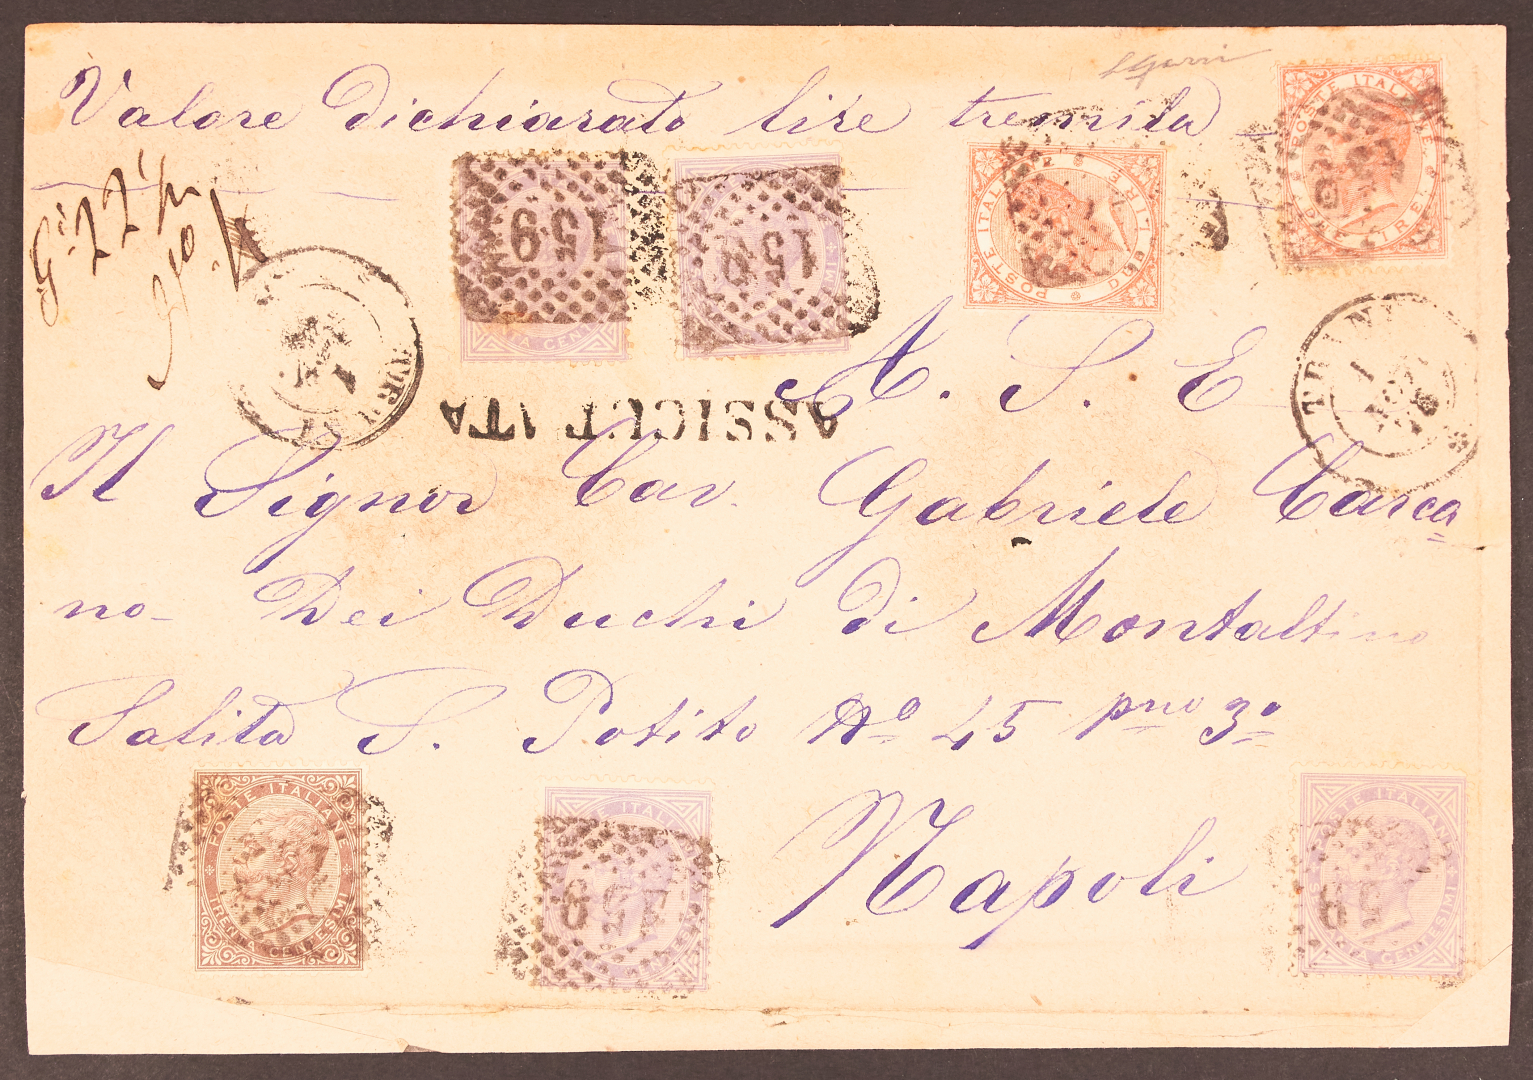 Valore dichiarato lire tremila
ASSICURATA
A. S. E
Il Signor Cav. Gabriele Carca=
no - Dei Duchi di Montaltino
Salita S. Potito No 45 pno 3o
Napoli
POSTE ITALIANE
DUE LIRE
POSTE ITALIANE
DUE LIRE
159
159
TRANI
POSTE ITALIANE
TRENTA CENTESIMI
POSTE ITALIANE
CENTESIMI
159